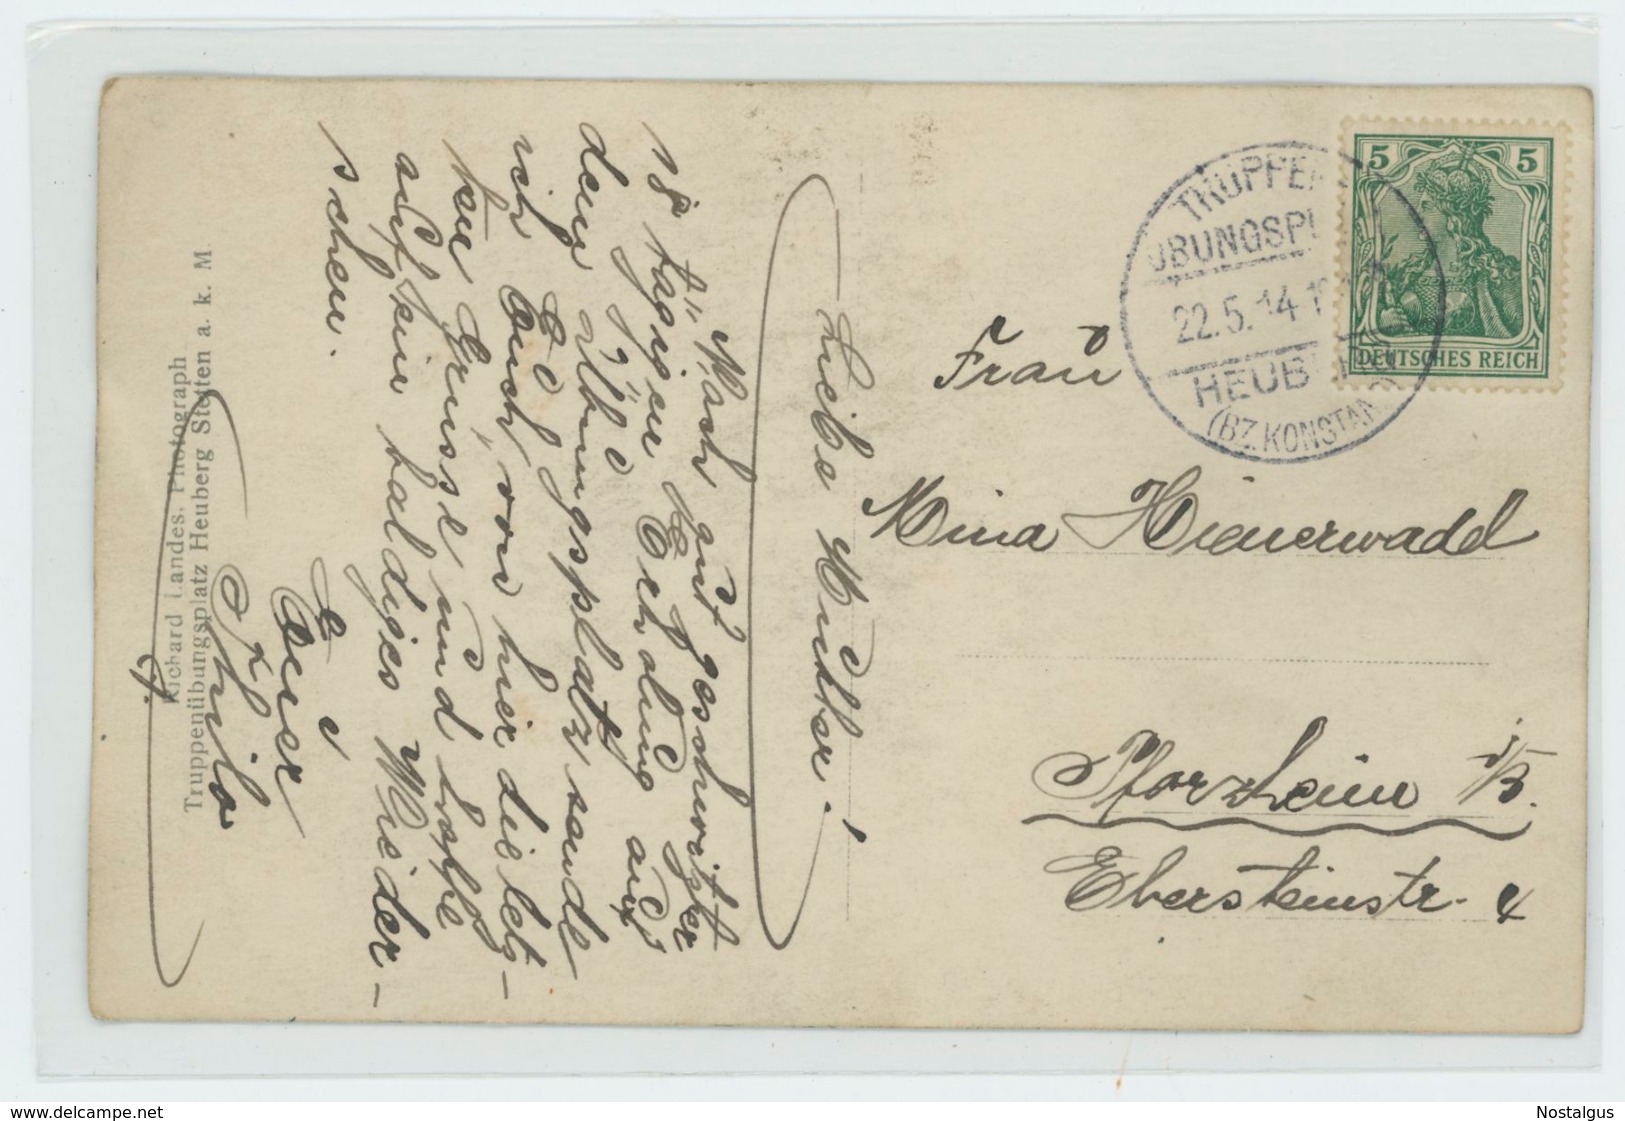 Liebe Mutter!
Nach gut geschweißter
18 tägiger Erholung auf
dem Übungsplatz sende
ich Euch von hier die letz-
ten Grüsse und hoffe
auf ein baldiges Wieder-
sehen.
Euer
Thilo
Richard Landes, Photograph
Truppenübungsplatz Heuberg Stetten a. k. M
TRUPPEN
ÜBUNGSPL
22.5.14 1
HEUB
(BZ. KONSTAN
5 5
DEUTSCHES REICH
Frau
Mina Hienerwadel
Pforzheim i/B.
Ebersteinstr. 4
www.delcampe.net
Nostalgus